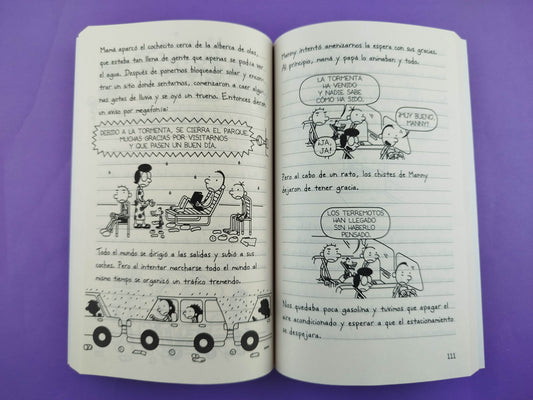 Mamá aparcó el cochecito cerca de la alberca de olas,
que estaba tan llena de gente que apenas se podía ver
el agua. Después de ponernos bloqueador solar y encon-
trar un sitio donde sentarnos, comenzaron a caer algu-
nas gotas de lluvia y se oyó un trueno. Entonces dieron
un aviso por megafonía:
DEBIDO A LA TORMENTA, SE CIERRA EL PARQUE.
MUCHAS GRACIAS POR VISITARNOS
Y QUE PASEN UN BUEN DÍA.
Todo el mundo se dirigió a las salidas y subió a sus
coches. Pero al intentar marcharse todo el mundo al
mismo tiempo se organizó un tráfico tremendo.
Manny intentó amenizarnos la espera con sus gracias.
Al principio, mamá y papá lo animaban y todo.
LA TORMENTA
HA VENIDO
Y NADIE SABE
CÓMO HA SIDO.
¡MUY BUENO,
MANNY!
¡JA,
JA!
Pero al cabo de un rato, los chistes de Manny
dejaron de tener gracia.
LOS TERREMOTOS
HAN LLEGADO
SIN HABERLO
PENSADO.
Nos quedaba poca gasolina y tuvimos que apagar el
aire acondicionado y esperar a que el estacionamiento
se despejara.
111